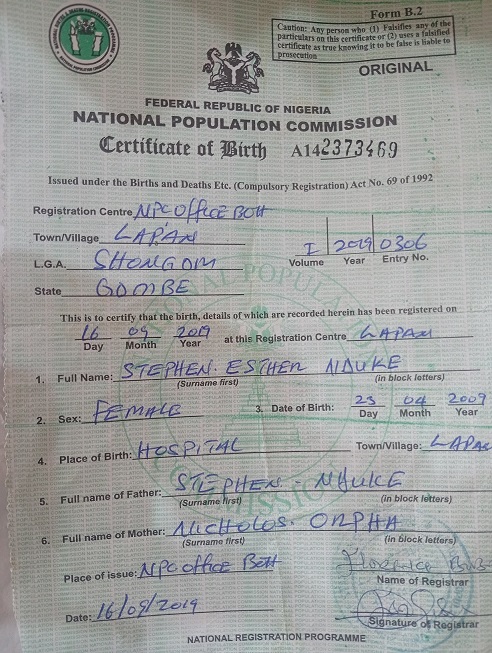 Form B.2
Caution: Any person who (1) Falsifies any of the
particulars on this certificate or (2) uses a falsified
certificate as true knowing it to be false is liable to
prosecution
ORIGINAL
FEDERAL REPUBLIC OF NIGERIA
NATIONAL POPULATION COMMISSION
Certificate of Birth A142373469
Issued under the Births and Deaths Etc. (Compulsory Registration) Act No. 69 of 1992
Registration Centre NPC OFFICE BOH
Town/Village LAPAN
I 2019 0306
Volume Year Entry No.
L.G.A. SHONGOM
State GOMBE
This is to certify that the birth, details of which are recorded herein has been registered on
16 09 2019 at this Registration Centre LAPAN
Day Month Year
1. Full Name: STEPHEN. ESTHER NAUKE
(Surname first) (in block letters)
2. Sex: FEMALE 3. Date of Birth: 23 04 2009
Day Month Year
4. Place of Birth: HOSPITAL Town/Village: LAPAN
5. Full name of Father: STEPHEN - NAUKE
(Surname first) (in block letters)
6. Full name of Mother: NICHOLOS. ORPHA
(Surname first) (in block letters)
Place of issue: NPC office BOH Florence
Name of Registrar
Date: 16/09/2019
Signature of Registrar
NATIONAL REGISTRATION PROGRAMME